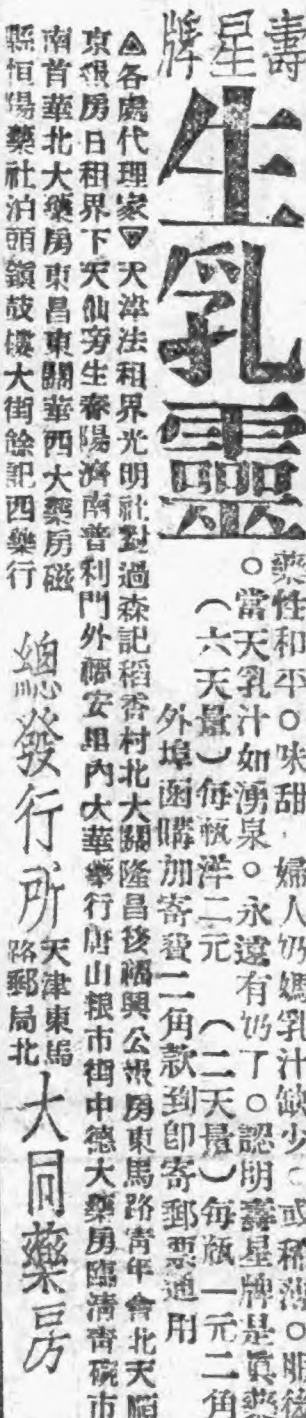 壽星牌
生乳靈
藥性和平○味甜，婦人奶媽乳汁缺少○或稀薄○服後
○當天乳汁如湧泉○永遠有奶了○認明壽星牌是眞藥
（六天量）每瓶洋二元　（二天量）每瓶一元二角
外埠函購加寄費二角款到卽寄郵票通用
△各處代理家▽天津法租界光明社對過森記稻香村北大關隆昌後福興公報房東馬路靑年會北天順
京報房日租界下天仙旁生春陽濟南普利門外福安里內大華藥行唐山粮市街中德大藥房臨淸靑碗市
南首華北大藥房東昌東關華西大藥房磁
縣恒陽藥社泊頭鎭鼓樓大街餘記西藥行
總發行所
天津東馬
路郵局北
大同藥房